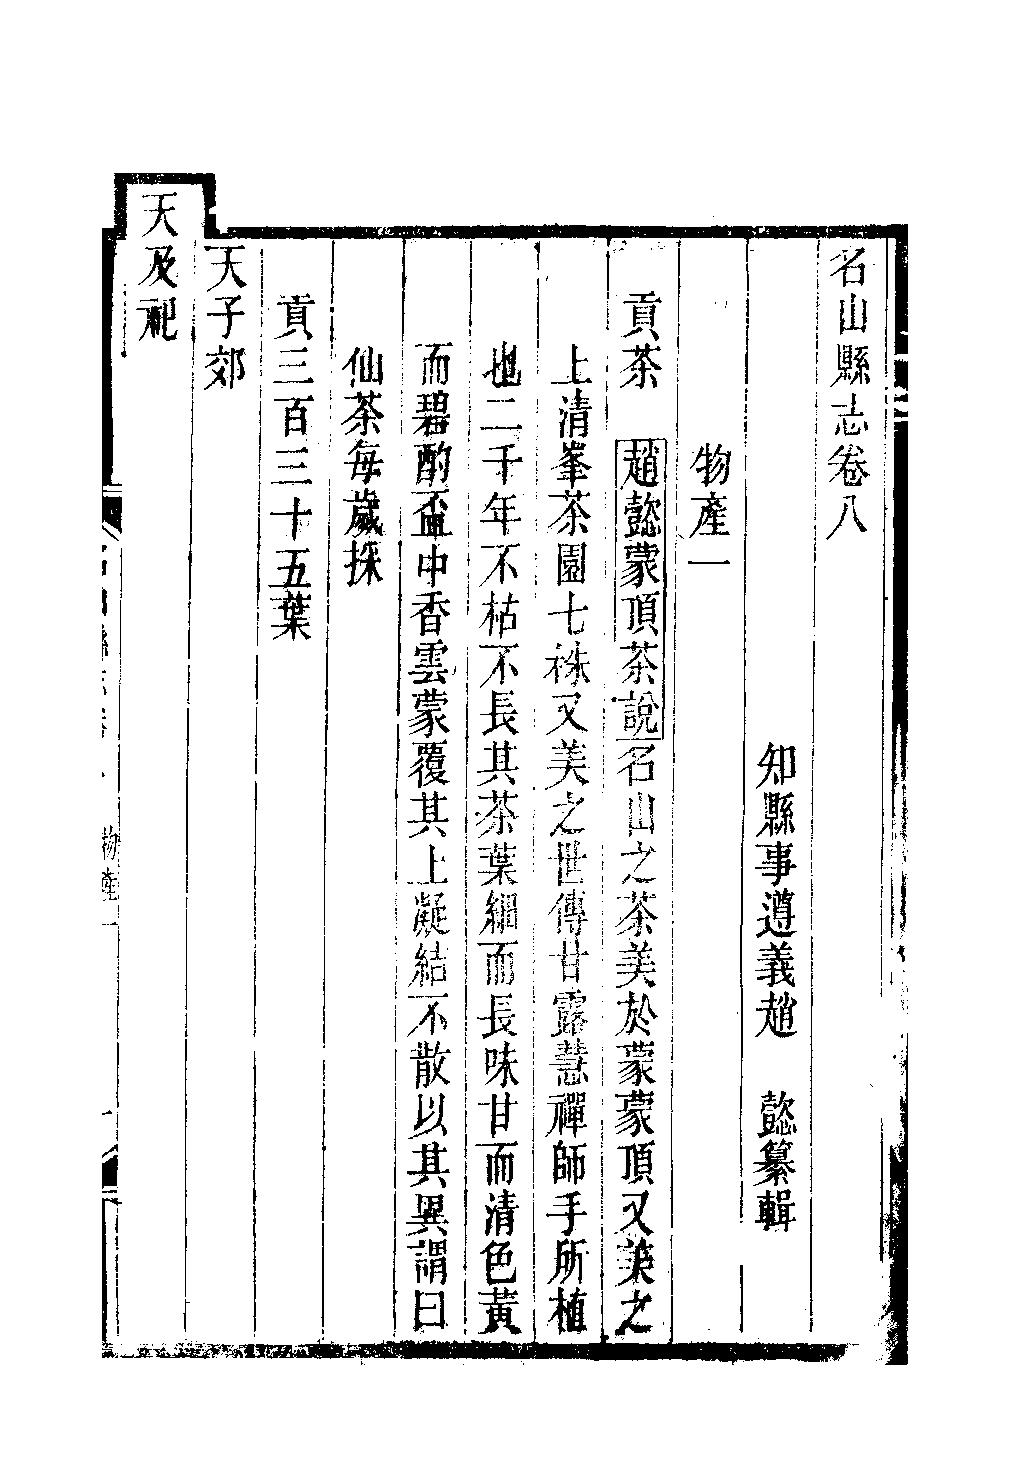 名山縣志卷八
知縣事遵義趙　懿纂輯
物產一
貢茶　趙懿蒙頂茶說名山之茶美於蒙蒙頂又美之
上清峯茶園七株又美之世傳甘露慧禪師手所植
也二千年不枯不長其茶葉細而長味甘而清色黃
而碧酌盃中香雲蒙覆其上凝結不散以其異謂曰
仙茶每歲採
貢三百三十五葉
天子郊
天及祀
物產一